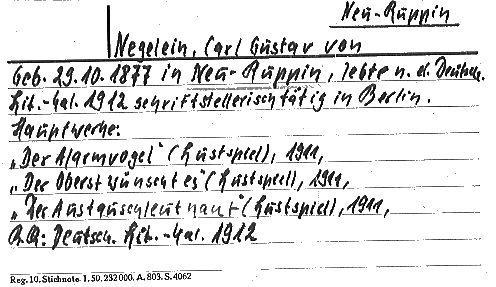 Neu-Ruppin
Negelein, Carl Gustav von
Geb. 29.10.1877 in Neu-Ruppin, lebte n. d. Deutsch.
Lit.-Kal. 1912 schriftstellerisch tätig in Berlin.
Hauptwerke:
„Der Alarmvogel" (Lustspiel), 1911,
„Der Oberst wünscht es" (Lustspiel), 1911,
„Der Austauschleutnant" (Lustspiel), 1911,
Qu: Deutsch. Lit.-Kal. 1912
Reg. 10. Stichnote. 1. 50. 232000. A. 803. S. 4062